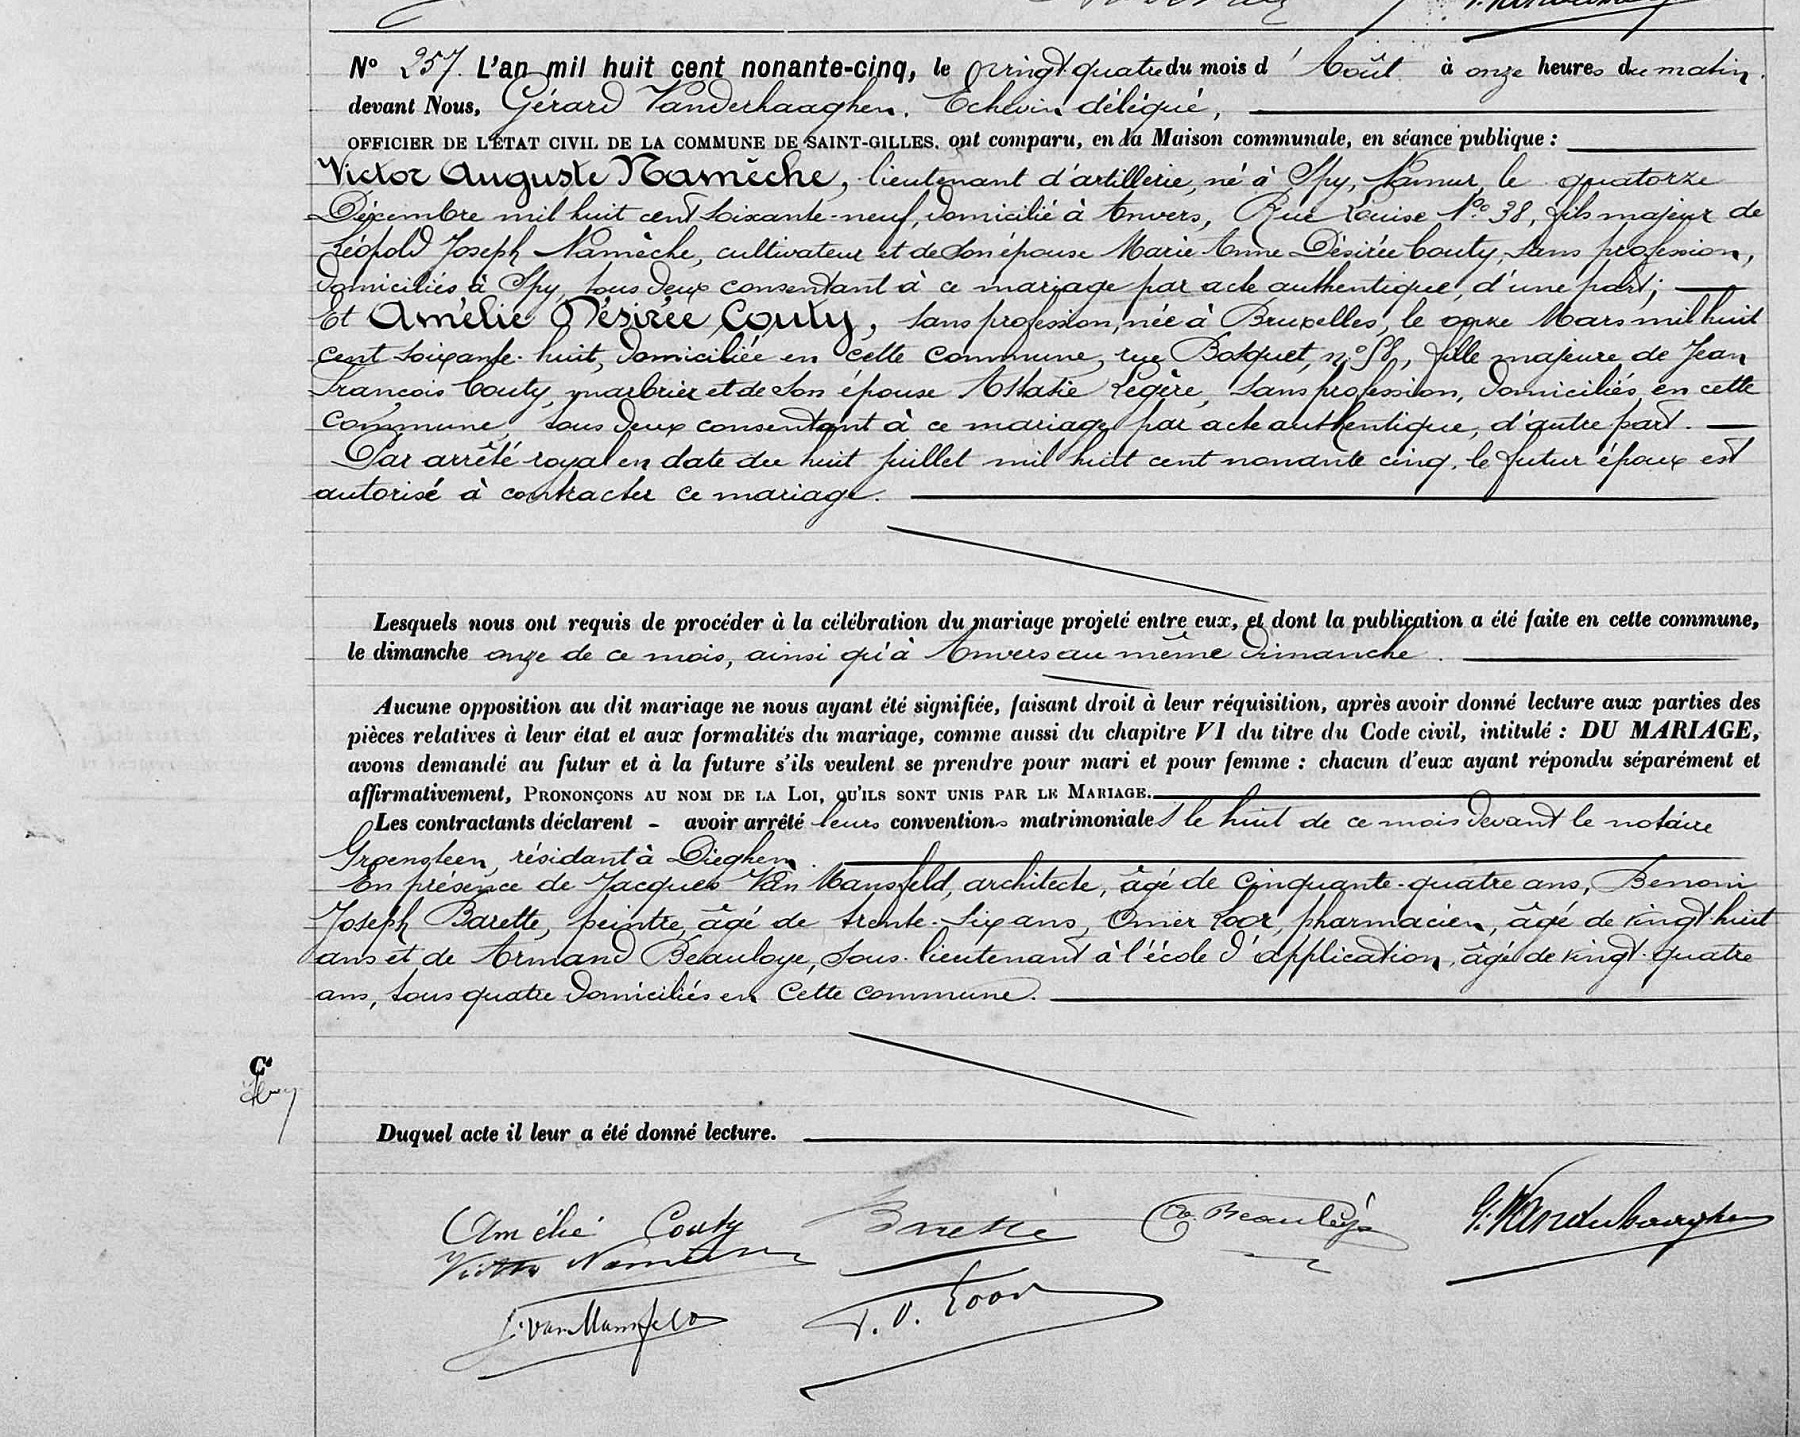 N° 257. L'an mil huit cent nonante-cinq, le vingt quatre du mois d' Août à onze heures du matin.
devant Nous, Gérard Vanderhaaghen, Echevin délégué,
OFFICIER DE L'ÉTAT CIVIL DE LA COMMUNE DE SAINT-GILLES, ont comparu, en la Maison communale, en séance publique :
Victor Auguste Namèche, lieutenant d'artillerie, né à Spy, Namur, le quatorze
Décembre mil huit cent soixante-neuf, domicilié à Anvers, Rue Louise N° 38, fils majeur de
Léopold Joseph Namèche, cultivateur et de son épouse Marie Anne Désirée Couty, sans profession,
domiciliés à Spy, tous deux consentant à ce mariage par acte authentique, d'une part;
Et Amélie Désirée Couty, sans profession, née à Bruxelles, le onze Mars mil huit
cent soixante-huit, domiciliée en cette commune, rue Bosquet, n° 58, fille majeure de Jean
François Couty, marbrier et de son épouse Astasie Legère, sans profession, domiciliés en cette
commune, tous deux consentant à ce mariage par acte authentique, d'autre part.
Par arrêté royal en date du huit juillet mil huit cent nonante cinq, le futur époux est
autorisé à contracter ce mariage.
Lesquels nous ont requis de procéder à la célébration du mariage projeté entre eux, et dont la publication a été faite en cette commune,
le dimanche onze de ce mois, ainsi qu'à Anvers au même dimanche.
Aucune opposition au dit mariage ne nous ayant été signifiée, faisant droit à leur réquisition, après avoir donné lecture aux parties des
pièces relatives à leur état et aux formalités du mariage, comme aussi du chapitre VI du titre du Code civil, intitulé : DU MARIAGE,
avons demandé au futur et à la future s'ils veulent se prendre pour mari et pour femme : chacun d'eux ayant répondu séparément et
affirmativement, PRONONÇONS AU NOM DE LA LOI, QU'ILS SONT UNIS PAR LE MARIAGE.
Les contractants déclarent - avoir arrêté leurs conventions matrimoniales le huit de ce mois devant le notaire
Groensteen, résidant à Dieghem.
En présence de Jacques Van Mansfeld, architecte, âgé de cinquante-quatre ans, Benoni
Joseph Barette, peintre, âgé de trente-six ans, Omer Loor, pharmacien, âgé de vingt-huit
ans et de Armand Beauloye, sous-lieutenant à l'école d'application, âgé de vingt-quatre
ans, tous quatre domiciliés en cette commune.
C'
Duquel acte il leur a été donné lecture.
Amélie Couty Barette Beauloye G. Vanderhaeghen
Victor Namèche
J. van Mansfeld